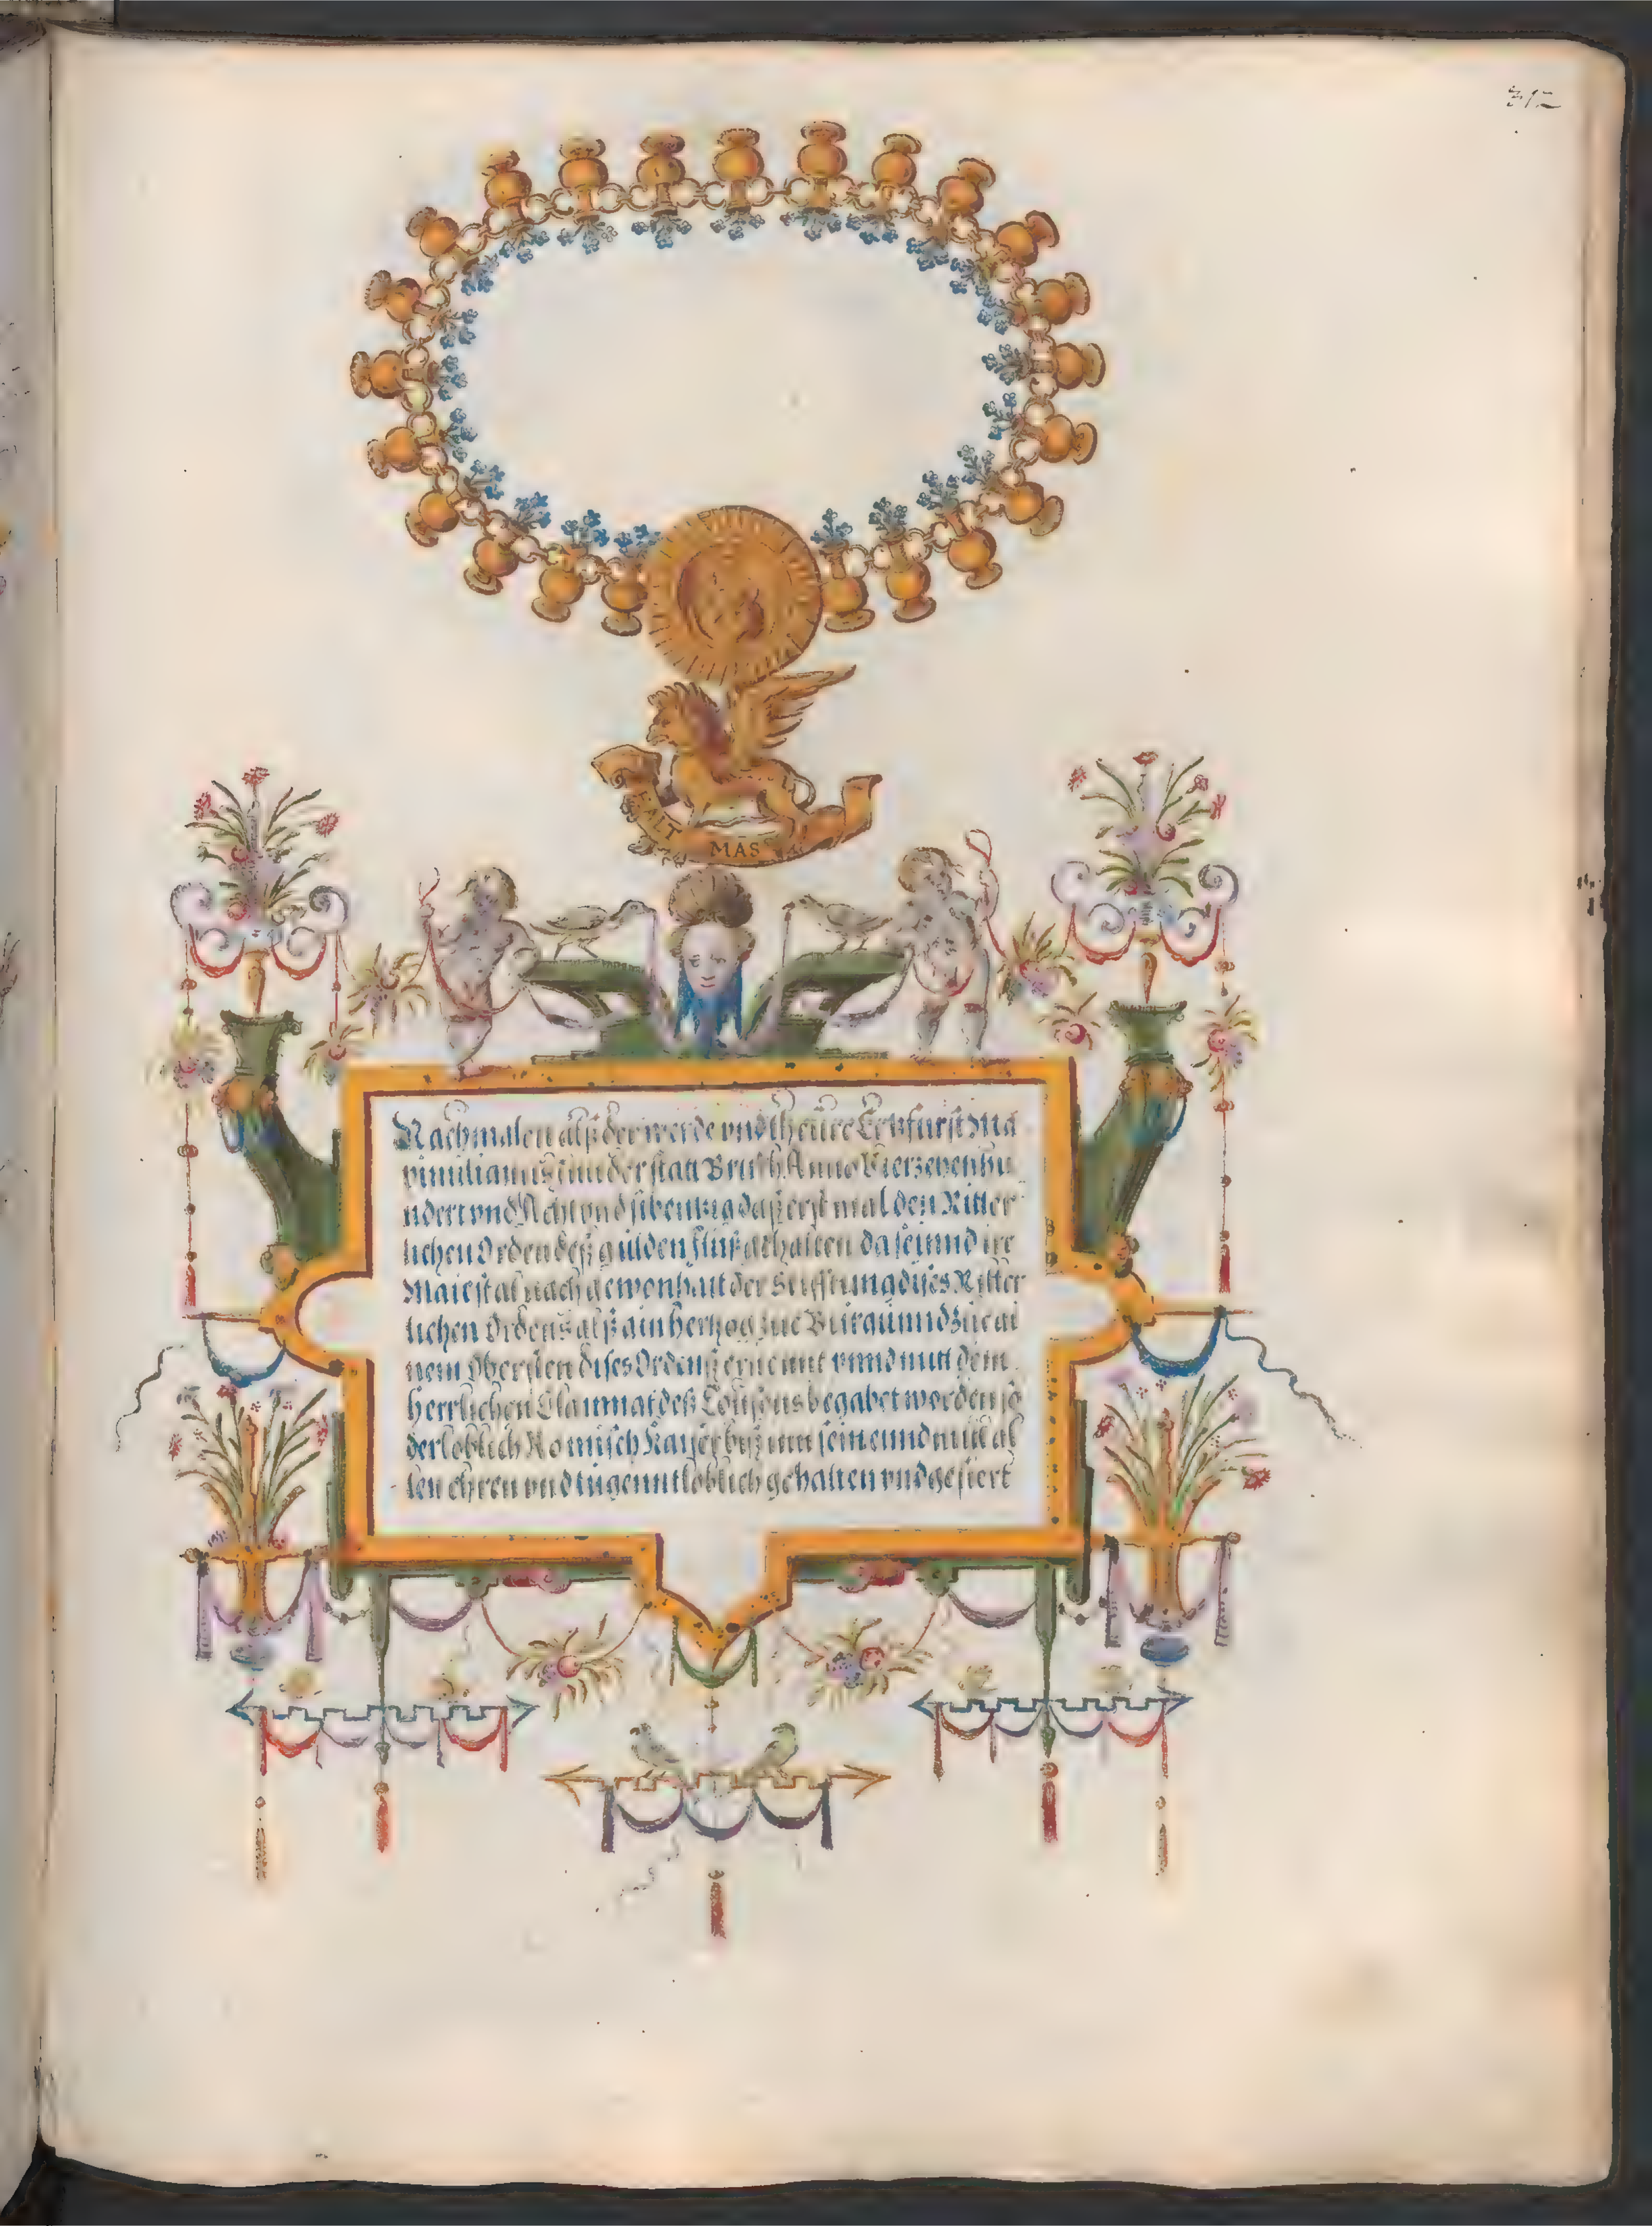 312
HALT
MAS
Nachmalen alß der werde vnd theüre Ertzfürst Ma
ximilianus inn der statt Brusch Anno Vierzehenhu
ndert vnd Acht vnd sibentzig daß erst mal den Ritter
lichen Orden deß gulden flüß gehalten da seinnd ire
Maiestat nach gewonhait der Stifftung dises Ritter
lichen Ordens alß ain Hertzog zue Burgaunnd zue ai
nem Obersten dises Ordenß ernennt vnnd mitt dem
herrlichen Clainnat deß Tousons begabet worden so
der loblich Romisch Kayser biß inn sein ennd mitt al
len ehren vnd tugennt loblich gehalten vnd gefiert